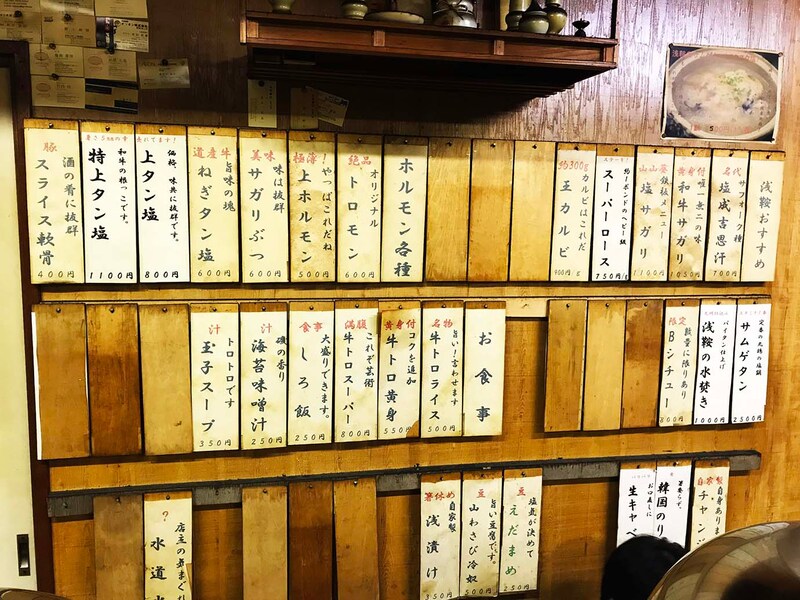 浅鞍おすすめ
名代
サフォーク種
塩成吉思汗
700円
黄身付
唯一無二の味
和牛サガリ
1050円
山山葵
鉄板メニュー
塩サガリ
1100円
スーパーロース
750円/g
約300g
カルビはこれだ
王カルビ
900円/g
ホルモン各種
絶品
オリジナル
トロモン
600円
極薄!
やっぱこれだね
上ホルモン
500円
美味
味は抜群
サガリぶつ
600円
道産牛
旨味の塊
ねぎタン塩
600円
売れてます!
価格、味共に抜群です。
上タン塩
800円
和牛の根っこです。
特上タン塩
1100円
豚
酒の肴に抜群
スライス軟骨
400円
サムゲタン
2500円
パイタン仕上げ
浅鞍の水焚き
1000円
限定
数量に限りあり
Bシチュー
800円
お食事
名物
旨い!言わせます
牛トロライス
500円
黄身付
コクを追加
牛トロ黄身
550円
満腹
これぞ芸術
牛トロスーパー
800円
食事
大盛りできます。
しろ飯
250円
汁
磯の香り
海苔味噌汁
250円
汁
トロトロです
玉子スープ
350円
自家製
チャンジ
韓国のり
お口直しに
生キャベ
豆
塩気が決めて
えだまめ
250円
豆
旨い豆腐です。
山わさび冷奴
500円
箸休め
自家製
浅漬け
350円
?
店主の煮まぐれ
水道水